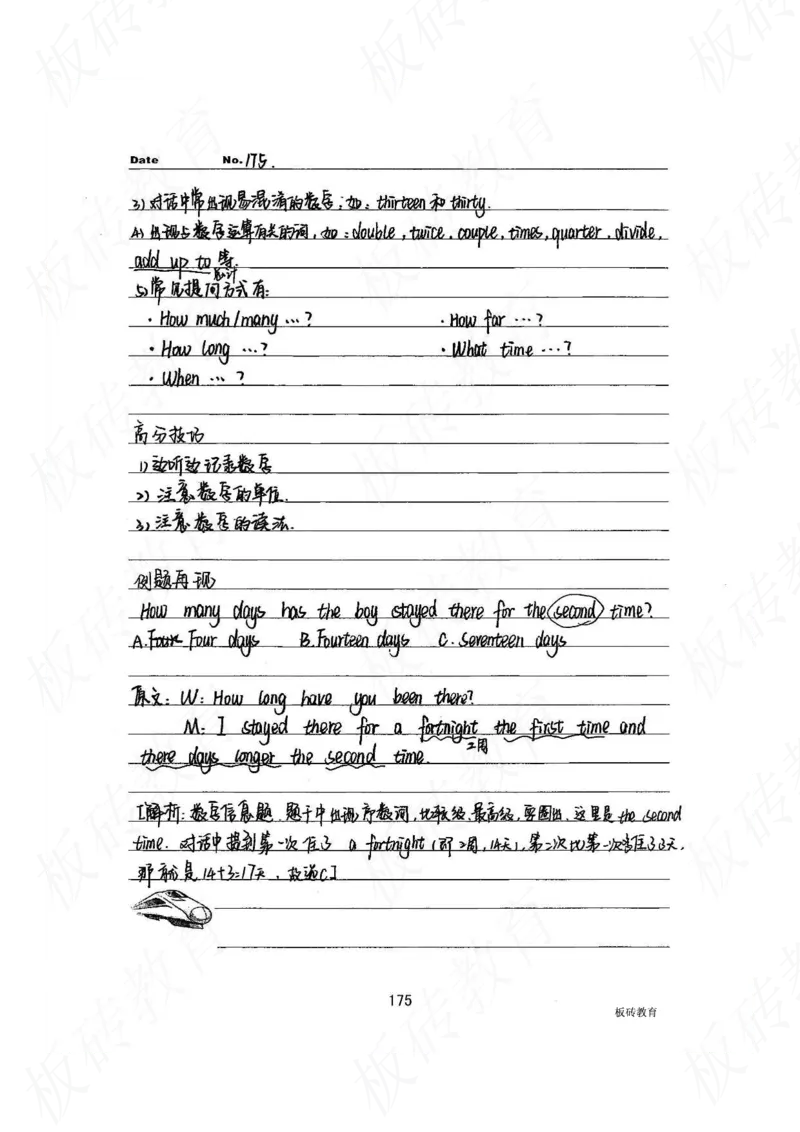 Date No. 175.
3) 对话中常出现易混淆的数字;如:thirteen 和 thirty.
4) 出现与数字运算有关的词,如:double, twice, couple, times, quarter, divide,
add up to 等.
总计
5) 常见提问方式有:
· How much/many …?
· How far …?
· How long …?
· What time …?
· When …?
高分技巧
1) 边听边记录数字
2) 注意数字的单位.
3) 注意数字的读法.
例题再现
How many days has the boy stayed there for the second time?
A. Four days B. Fourteen days C. seventeen days
原文: W: How long have you been there?
M: I stayed there for a fortnight the first time and
二周
there days longer the second time.
[解析: 数字信息题. 题干中出现序数词, 比较级, 最高级, 要圈出. 这里是 the second
time. 对话中提到第一次住了 a fortnight (即二周, 14天), 第二次比第一次多住了3天,
那就是14+3=17天, 故选C]
175
板砖教育